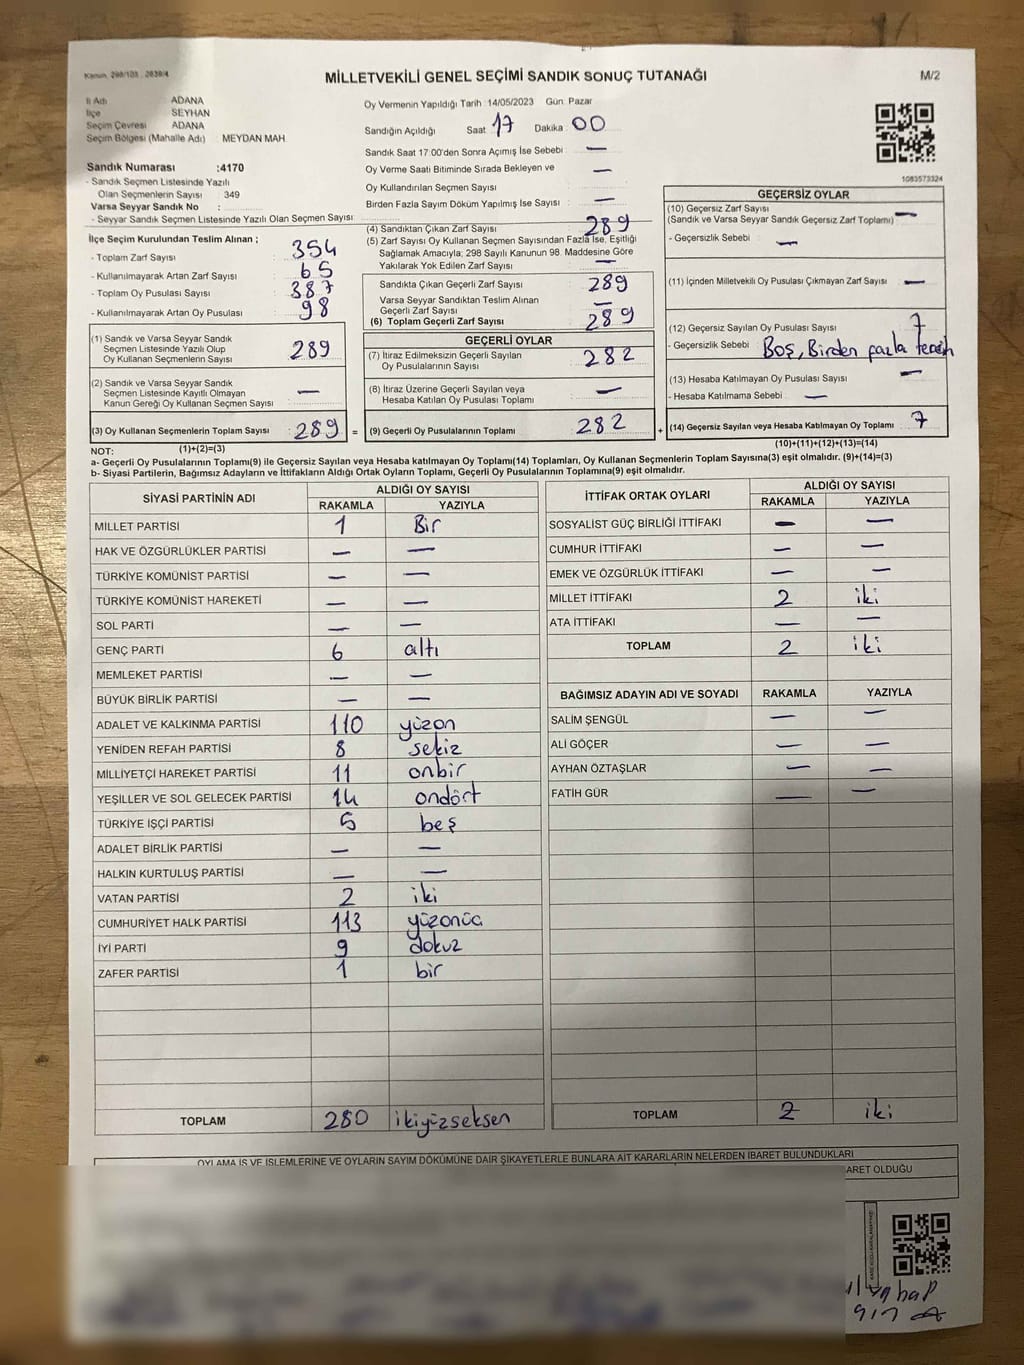 Kanun, 298/103 . 2839/4
MİLLETVEKİLİ GENEL SEÇİMİ SANDIK SONUÇ TUTANAĞI
M/2
İl Adı ADANA
İlçe SEYHAN
Seçim Çevresi ADANA
Seçim Bölgesi (Mahalle Adı) MEYDAN MAH.
Sandık Numarası :4170
- Sandık Seçmen Listesinde Yazılı
Olan Seçmenlerin Sayısı : 349
Varsa Seyyar Sandık No :
- Seyyar Sandık Seçmen Listesinde Yazılı Olan Seçmen Sayısı
Oy Vermenin Yapıldığı Tarih 14/05/2023 Gün Pazar
Sandığın Açıldığı Saat 17 Dakika 00
Sandık Saat 17:00'den Sonra Açımış İse Sebebi : —
Oy Verme Saati Bitiminde Sırada Bekleyen ve —
Oy Kullandırılan Seçmen Sayısı
Birden Fazla Sayım Döküm Yapılmış İse Sayısı : —
1083573324
İlçe Seçim Kurulundan Teslim Alınan ;
- Toplam Zarf Sayısı : 354
- Kullanılmayarak Artan Zarf Sayısı : 65
- Toplam Oy Pusulası Sayısı : 387
- Kullanılmayarak Artan Oy Pusulası : 98
(1) Sandık ve Varsa Seyyar Sandık
Seçmen Listesinde Yazılı Olup
Oy Kullanan Seçmenlerin Sayısı 289
(2) Sandık ve Varsa Seyyar Sandık
Seçmen Listesinde Kayıtlı Olmayan
Kanun Gereği Oy Kullanan Seçmen Sayısı —
(3) Oy Kullanan Seçmenlerin Toplam Sayısı 289 =
(4) Sandıktan Çıkan Zarf Sayısı : 289
(5) Zarf Sayısı Oy Kullanan Seçmen Sayısından Fazla İse, Eşitliği
Sağlamak Amacıyla; 298 Sayılı Kanunun 98. Maddesine Göre
Yakılarak Yok Edilen Zarf Sayısı : —
Sandıkta Çıkan Geçerli Zarf Sayısı : 289
Varsa Seyyar Sandıktan Teslim Alınan —
Geçerli Zarf Sayısı
(6) Toplam Geçerli Zarf Sayısı : 289
GEÇERLİ OYLAR
(7) İtiraz Edilmeksizin Geçerli Sayılan
Oy Pusulalarının Sayısı : 282
(8) İtiraz Üzerine Geçerli Sayılan veya
Hesaba Katılan Oy Pusulası Toplamı —
(9) Geçerli Oy Pusulalarının Toplamı : 282 +
GEÇERSİZ OYLAR
(10) Geçersiz Zarf Sayısı —
(Sandık ve Varsa Seyyar Sandık Geçersiz Zarf Toplamı)
- Geçersizlik Sebebi : —
(11) İçinden Milletvekili Oy Pusulası Çıkmayan Zarf Sayısı : —
(12) Geçersiz Sayılan Oy Pusulası Sayısı : 7
- Geçersizlik Sebebi : Boş, Birden fazla tercih
(13) Hesaba Katılmayan Oy Pusulası Sayısı : —
- Hesaba Katılmama Sebebi : —
(14) Geçersiz Sayılan veya Hesaba Katılmayan Oy Toplamı : 7
NOT: (1)+(2)=(3)
(10)+(11)+(12)+(13)=(14)
a- Geçerli Oy Pusulalarının Toplamı(9) ile Geçersiz Sayılan veya Hesaba katılmayan Oy Toplamı(14) Toplamları, Oy Kullanan Seçmenlerin Toplam Sayısına(3) eşit olmalıdır. (9)+(14)=(3)
b- Siyasi Partilerin, Bağımsız Adayların ve İttifakların Aldığı Ortak Oyların Toplamı, Geçerli Oy Pusulalarının Toplamına(9) eşit olmalıdır.
SİYASİ PARTİNİN ADI
ALDIĞI OY SAYISI
RAKAMLA YAZIYLA
MİLLET PARTİSİ 1 Bir
HAK VE ÖZGÜRLÜKLER PARTİSİ — —
TÜRKİYE KOMÜNİST PARTİSİ — —
TÜRKİYE KOMÜNİST HAREKETİ — —
SOL PARTİ — —
GENÇ PARTİ 6 altı
MEMLEKET PARTİSİ — —
BÜYÜK BİRLİK PARTİSİ — —
ADALET VE KALKINMA PARTİSİ 110 yüzon
YENİDEN REFAH PARTİSİ 8 sekiz
MİLLİYETÇİ HAREKET PARTİSİ 11 onbir
YEŞİLLER VE SOL GELECEK PARTİSİ 14 ondört
TÜRKİYE İŞÇİ PARTİSİ 5 beş
ADALET BİRLİK PARTİSİ — —
HALKIN KURTULUŞ PARTİSİ — —
VATAN PARTİSİ 2 iki
CUMHURİYET HALK PARTİSİ 113 yüzonüç
İYİ PARTİ 9 dokuz
ZAFER PARTİSİ 1 bir
TOPLAM 280 ikiyüzseksen
İTTİFAK ORTAK OYLARI
ALDIĞI OY SAYISI
RAKAMLA YAZIYLA
SOSYALİST GÜÇ BİRLİĞİ İTTİFAKI — —
CUMHUR İTTİFAKI — —
EMEK VE ÖZGÜRLÜK İTTİFAKI — —
MİLLET İTTİFAKI 2 iki
ATA İTTİFAKI — —
TOPLAM 2 iki
BAĞIMSIZ ADAYIN ADI VE SOYADI RAKAMLA YAZIYLA
SALİM ŞENGÜL — —
ALİ GÖÇER — —
AYHAN ÖZTAŞLAR — —
FATİH GÜR — —
TOPLAM 2 iki
OYLAMA İŞ VE İŞLEMLERİNE VE OYLARIN SAYIM DÖKÜMÜNE DAİR ŞİKAYETLERLE BUNLARA AİT KARARLARIN NELERDEN İBARET BULUNDUKLARI
ARET OLDUĞU